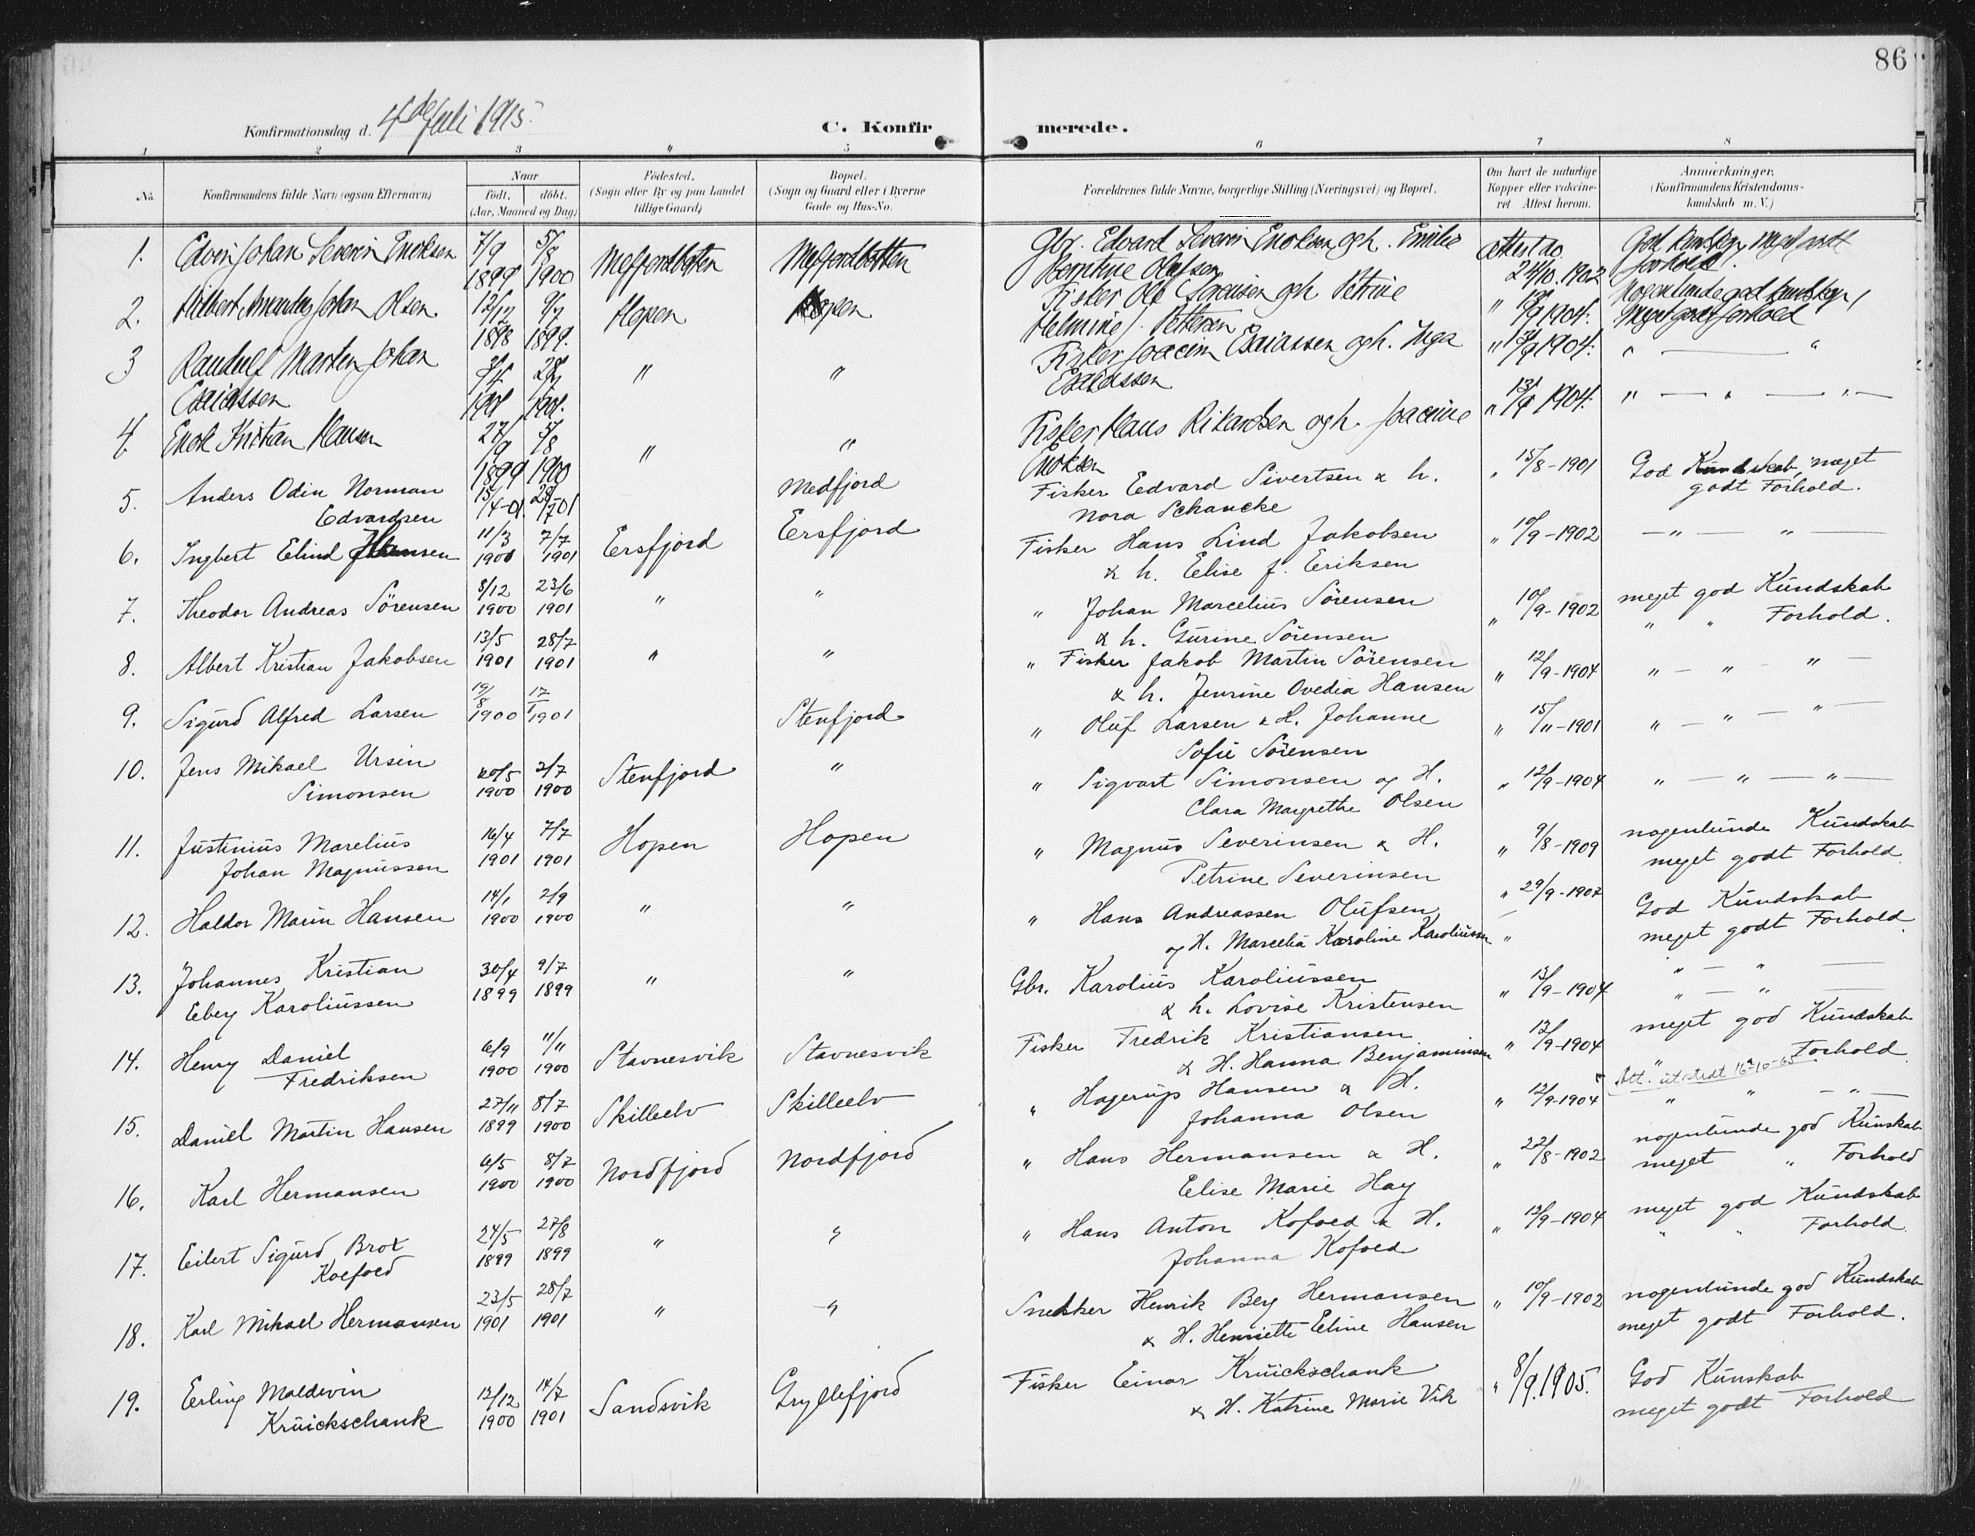 86
Konfirmationsdag d. 4de Juli 1915.
C. Konfirmerede.
1 2 3 " 5 6 7 8
No. Konfirmandens fulde Navn (ogsaa Efternavn) Naar født, døbt. (Aar, Maaned og Dag) Fødested. (Sogn eller By og paa Landet tillige Gaard) Bopæl. (Sogn og Gaard eller i Byerne Gade og Hus-No. Forældrenes fulde Navne, borgerlige Stilling (Næringsvei) og Bopæl. Om havt de naturlige Kopper eller vakcineret. Attest herom. Anmærkninger. (Konfirmandens Kristendomskundskab m. V.)
1. Edvin Johan Severin Enoksen 7/9 1899 5/8 1900 Mefjordbotten Mefjordbotten Gbr. Edvard Severin Enoksen og h. Emilie
Olufsen 24/10. 1902 forhold.
2. Hilbert Johan Olsen. 12/12 1898 9/7 1899. Hopen Hopen Fisker Ole Sørensen og h. Petrine
Pettersen " 10/9 1904. Nogenlunde god kundskap, Meget godt forhold
3 Randulf Marten Johan 1901 28/7 1901. " " Fisker Joacim Esaiassen og h. Inga " 13/9 1904. " — "
Esaiassen Esaiassen
4. Enok Kristian Hansen 27/9 1899 5/8 1900 " " Fisker Hans Rikardsen og h. Joacine " 13/9 1904. " — " — " —
Enoksen
5. Anders Odin Norman 15/4-01. 28/7 01 Medfjord Fisker Edvard Sivertsen & h. " 15/8-1901 God Kundskab, meget
Edvardsen Nora Schancke godt Forhold.
6. Ingbert Elind Hansen 11/3 1901 7/7 1901 Ersfjord Ersfjord Fisker Hans Lind Jakobsen " 10/9-1902 — " — " —
& h. Elise f. Eriksen
7. Theodor Andreas Sörensen 8/12 1900 23/6 1901 " " " Johan Marcelius Sörensen " 10/9-1902 meget god Kundskab
& h. Gurine Sörensen " " Forhold.
8. Albert Kristian Jakobsen 13/5 1901 28/7 1901 " " " Fisker Jakob Martin Sörensen " 12/9-1904 " — " — " —
& h. Jenrine Ovedia Hansen
9. Sigurd Alfred Larsen 19/8 1900 17/1 1901 Stenfjord " Oluf Larsen & H. Johanne " 15/11-1901 " — " — " —
Sofie Sörensen
10. Jens Mikael Ursin 20/5 1900 2/7 1900 Stenfjord " " Sigvart Simonsen og H. " 12/9-1904 " — " — " —
Simonsen Clara Margrethe Olsen
11. Justinius Marelius 16/4 1901 7/7 1901 Hopen Hopen " Magnus Severinsen & H. " 9/8-1909 nogenlunde Kundskab
Johan Magnussen Petrine Severinsen meget godt Forhold.
12. Haldor Marin Hansen 14/1 1900 2/9 1900 " " " Hans Andreassen Olufsen " 29/9-1907 God Kundskab
og H. Marcelia Karoline Karoliussen " meget godt Forhold.
13. Johannes Kristian 30/4 1899 9/7 1899 " " Gbr. Karolius Karoliussen " 13/9-1904 " — " —
Eberg Karoliussen & h. Lovise Kristensen " — " —
14. Henry Daniel 6/9 1900 11/11 1900 Stavnesvik Stavnesvik Fisker Fredrik Kristiansen " 12/9-1904 meget god Kundskab
Fredriksen & H. Hanna Benjaminsen " " Forhold.
Att. utstedt 16-10-65
15. Daniel Martin Hansen 27/11 1899 8/7 1900 Skilleelv Skilleelv " Hagerup Hansen & H. " 12/9-1904 " " — " —
Johanna Olsen
16. Karl Hermansen 6/5 1900 8/7 1900 Nordfjord Nordfjord " Hans Hermansen & H. " 22/8-1902 nogenlunde god Kunskab
Elise Marie Hay meget " Forhold
17. Eilert Sigurd Brox 24/5 1899 27/8 1899 " " " Hans Anton Kofoed & H. " 12/9-1904 meget god Kundskab
Koefoed Johanna Kofoed " " Forhold.
18. Karl Mikael Hermansen 23/5 1901 28/7 1901 " " Snekker Henrik Berg Hermansen " 10/9-1902 nogenlunde god Kundskab
& H. Henriette Eline Hansen meget godt Forhold.
19. Erling Maldevin 12/12 1900 14/7 1901 Sandsvik Gryllefjord Fisker Einar Kruickschank " 8/9.1905. God Kunskab
Kruickschank & H. Katrine Marie Vik meget godt Forhold